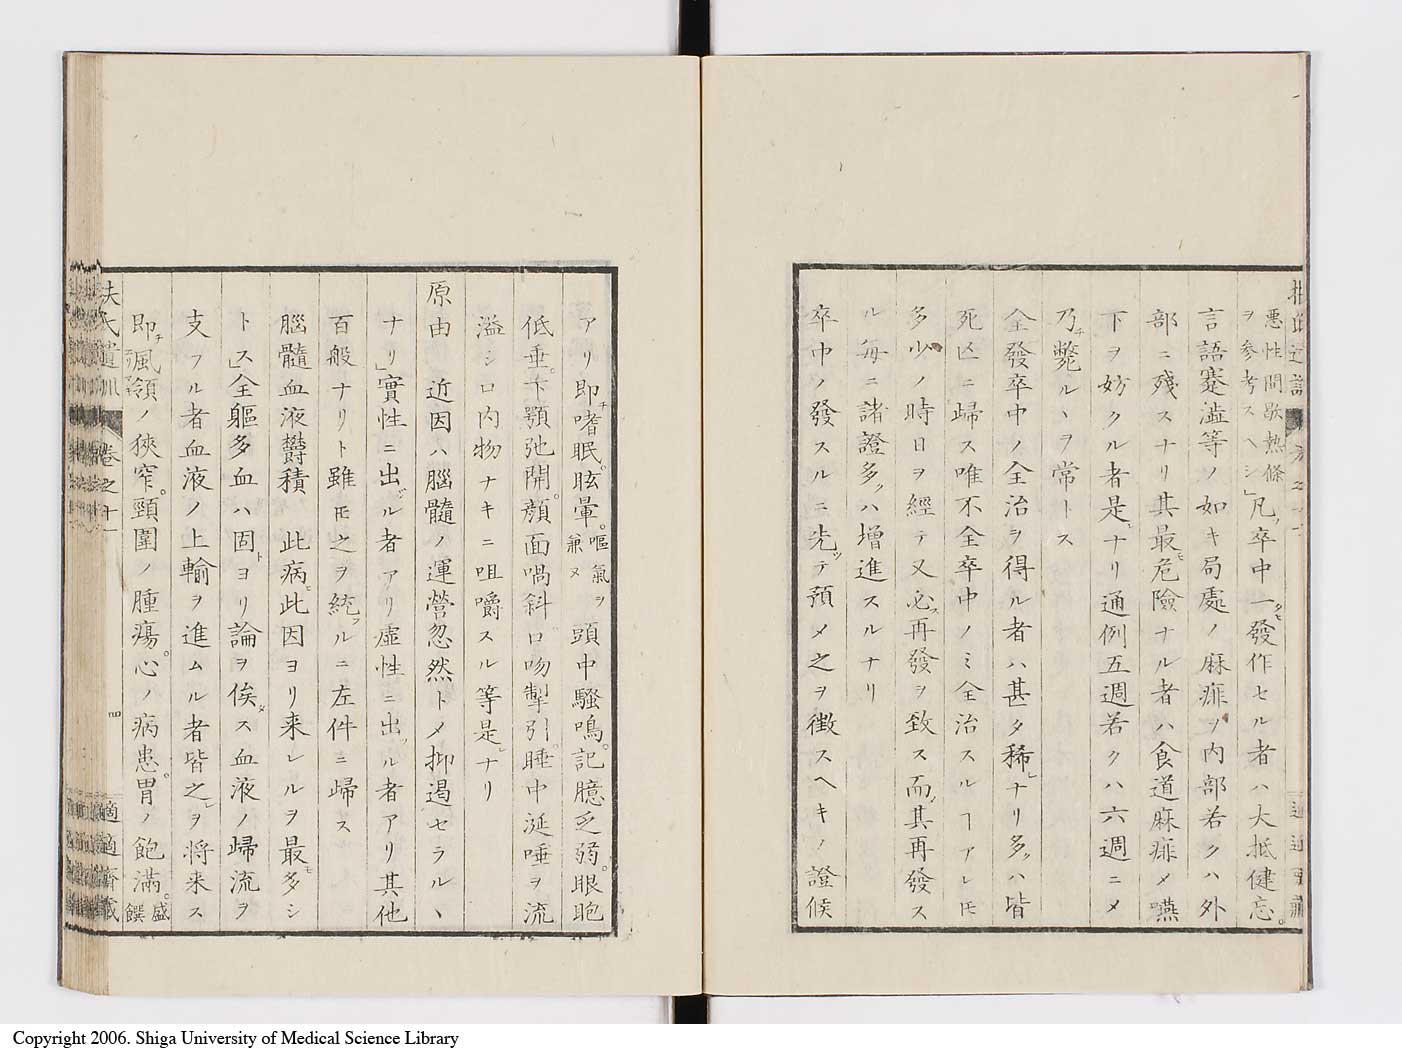 悪性間歇熱條
ヲ参考スヘシ」凡ソ卒中一タヒ發作セル者ハ大抵健忘。
言語蹇澁等ノ如キ局處ノ麻痺ヲ内部若クハ外
部ニ殘スナリ其最モ危險ナル者ハ食道麻痺メ嚥
下ヲ妨クル者是ナリ通例五週若クハ六週ニメ
乃チ斃ルヽヲ常トス
全發卒中ノ全治ヲ得ル者ハ甚タ稀レナリ多クハ皆
死亡ニ歸ス唯不全卒中ノミ全治スルヿアレ𪜈
多少ノ時日ヲ經テ又必ス再發ヲ致ス而ノ其再發ス
ル毎ニ諸證多クハ増進スルナリ
卒中ノ發スルニ先ツテ預メ之ヲ徴スヘキノ證候
アリ即チ嗜眠。眩暈。嘔氣ヲ兼ヌ頭中騒鳴。記臆乏弱。眼胞
低垂。下顎弛開。顔面喎斜口吻掣引。睡中涎唾ヲ流
溢シ口内物ナキニ咀嚼スル等是レナリ
原由 近因ハ腦髓ノ運營忽然トメ抑遏セラルヽ
ナリ」實性ニ出ヅル者アリ虚性ニ出ツル者アリ其他
百般ナリト雖𪜈之ヲ統フルニ左件ニ歸ス
腦髓血液欝積 此病ヒ此因ヨリ来レルヲ最モ多シ
トス」全軀多血ハ固トヨリ論ヲ俟タス血液ノ歸流ヲ
支フル者血液ノ上輸ヲ進ムル者皆之レヲ將来ス
即チ諷領ノ狹窄。頸圍ノ腫瘍。心ノ病患。胃ノ飽滿。盛饌
扶氏遺訓 卷之十一 四 適適齋藏